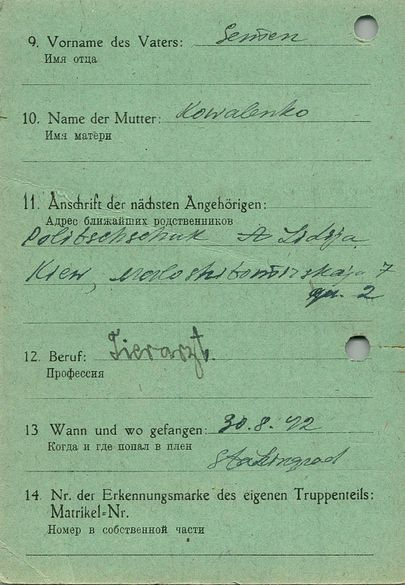 9. Vorname des Vaters: Semen
Имя отца
10. Name der Mutter: Kowalenko
Имя матери
11. Anschrift der nächsten Angehörigen:
Адрес ближайших родственников
Politschschuk A Lidija
Kiew, Maloshitomirskaja 7
qu. 2
12. Beruf: Tierarzt.
Профессия
13 Wann und wo gefangen: 30.8.42
Когда и где попал в плен
Stalingrad
14. Nr. der Erkennungsmarke des eigenen Truppenteils:
Matrikel-Nr.
Номер в собственной части